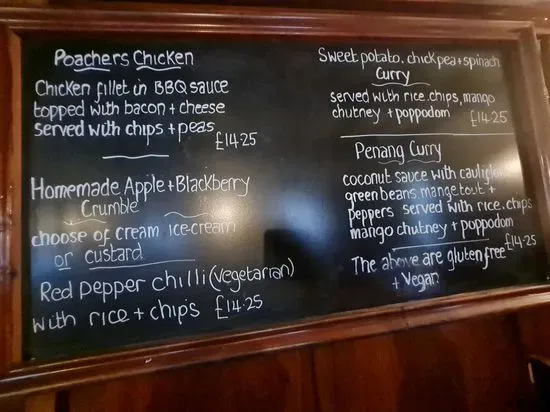 Poachers Chicken
Chicken fillet in BBQ sauce
topped with bacon + cheese
served with chips + peas
£14.25
Homemade Apple + Blackberry
Crumble
choose of cream ice-cream
or custard
Red Pepper chilli (Vegetarian)
with rice + chips £14.25
Sweet potato, chickpea + spinach
Curry
served with rice, chips, mango
chutney + poppodom £14.25
Penang Curry
coconut sauce with
green beans, mange tout +
Peppers served with rice, chips
mango chutney + poppodom
£14.25
The above are gluten free
+ Vegan